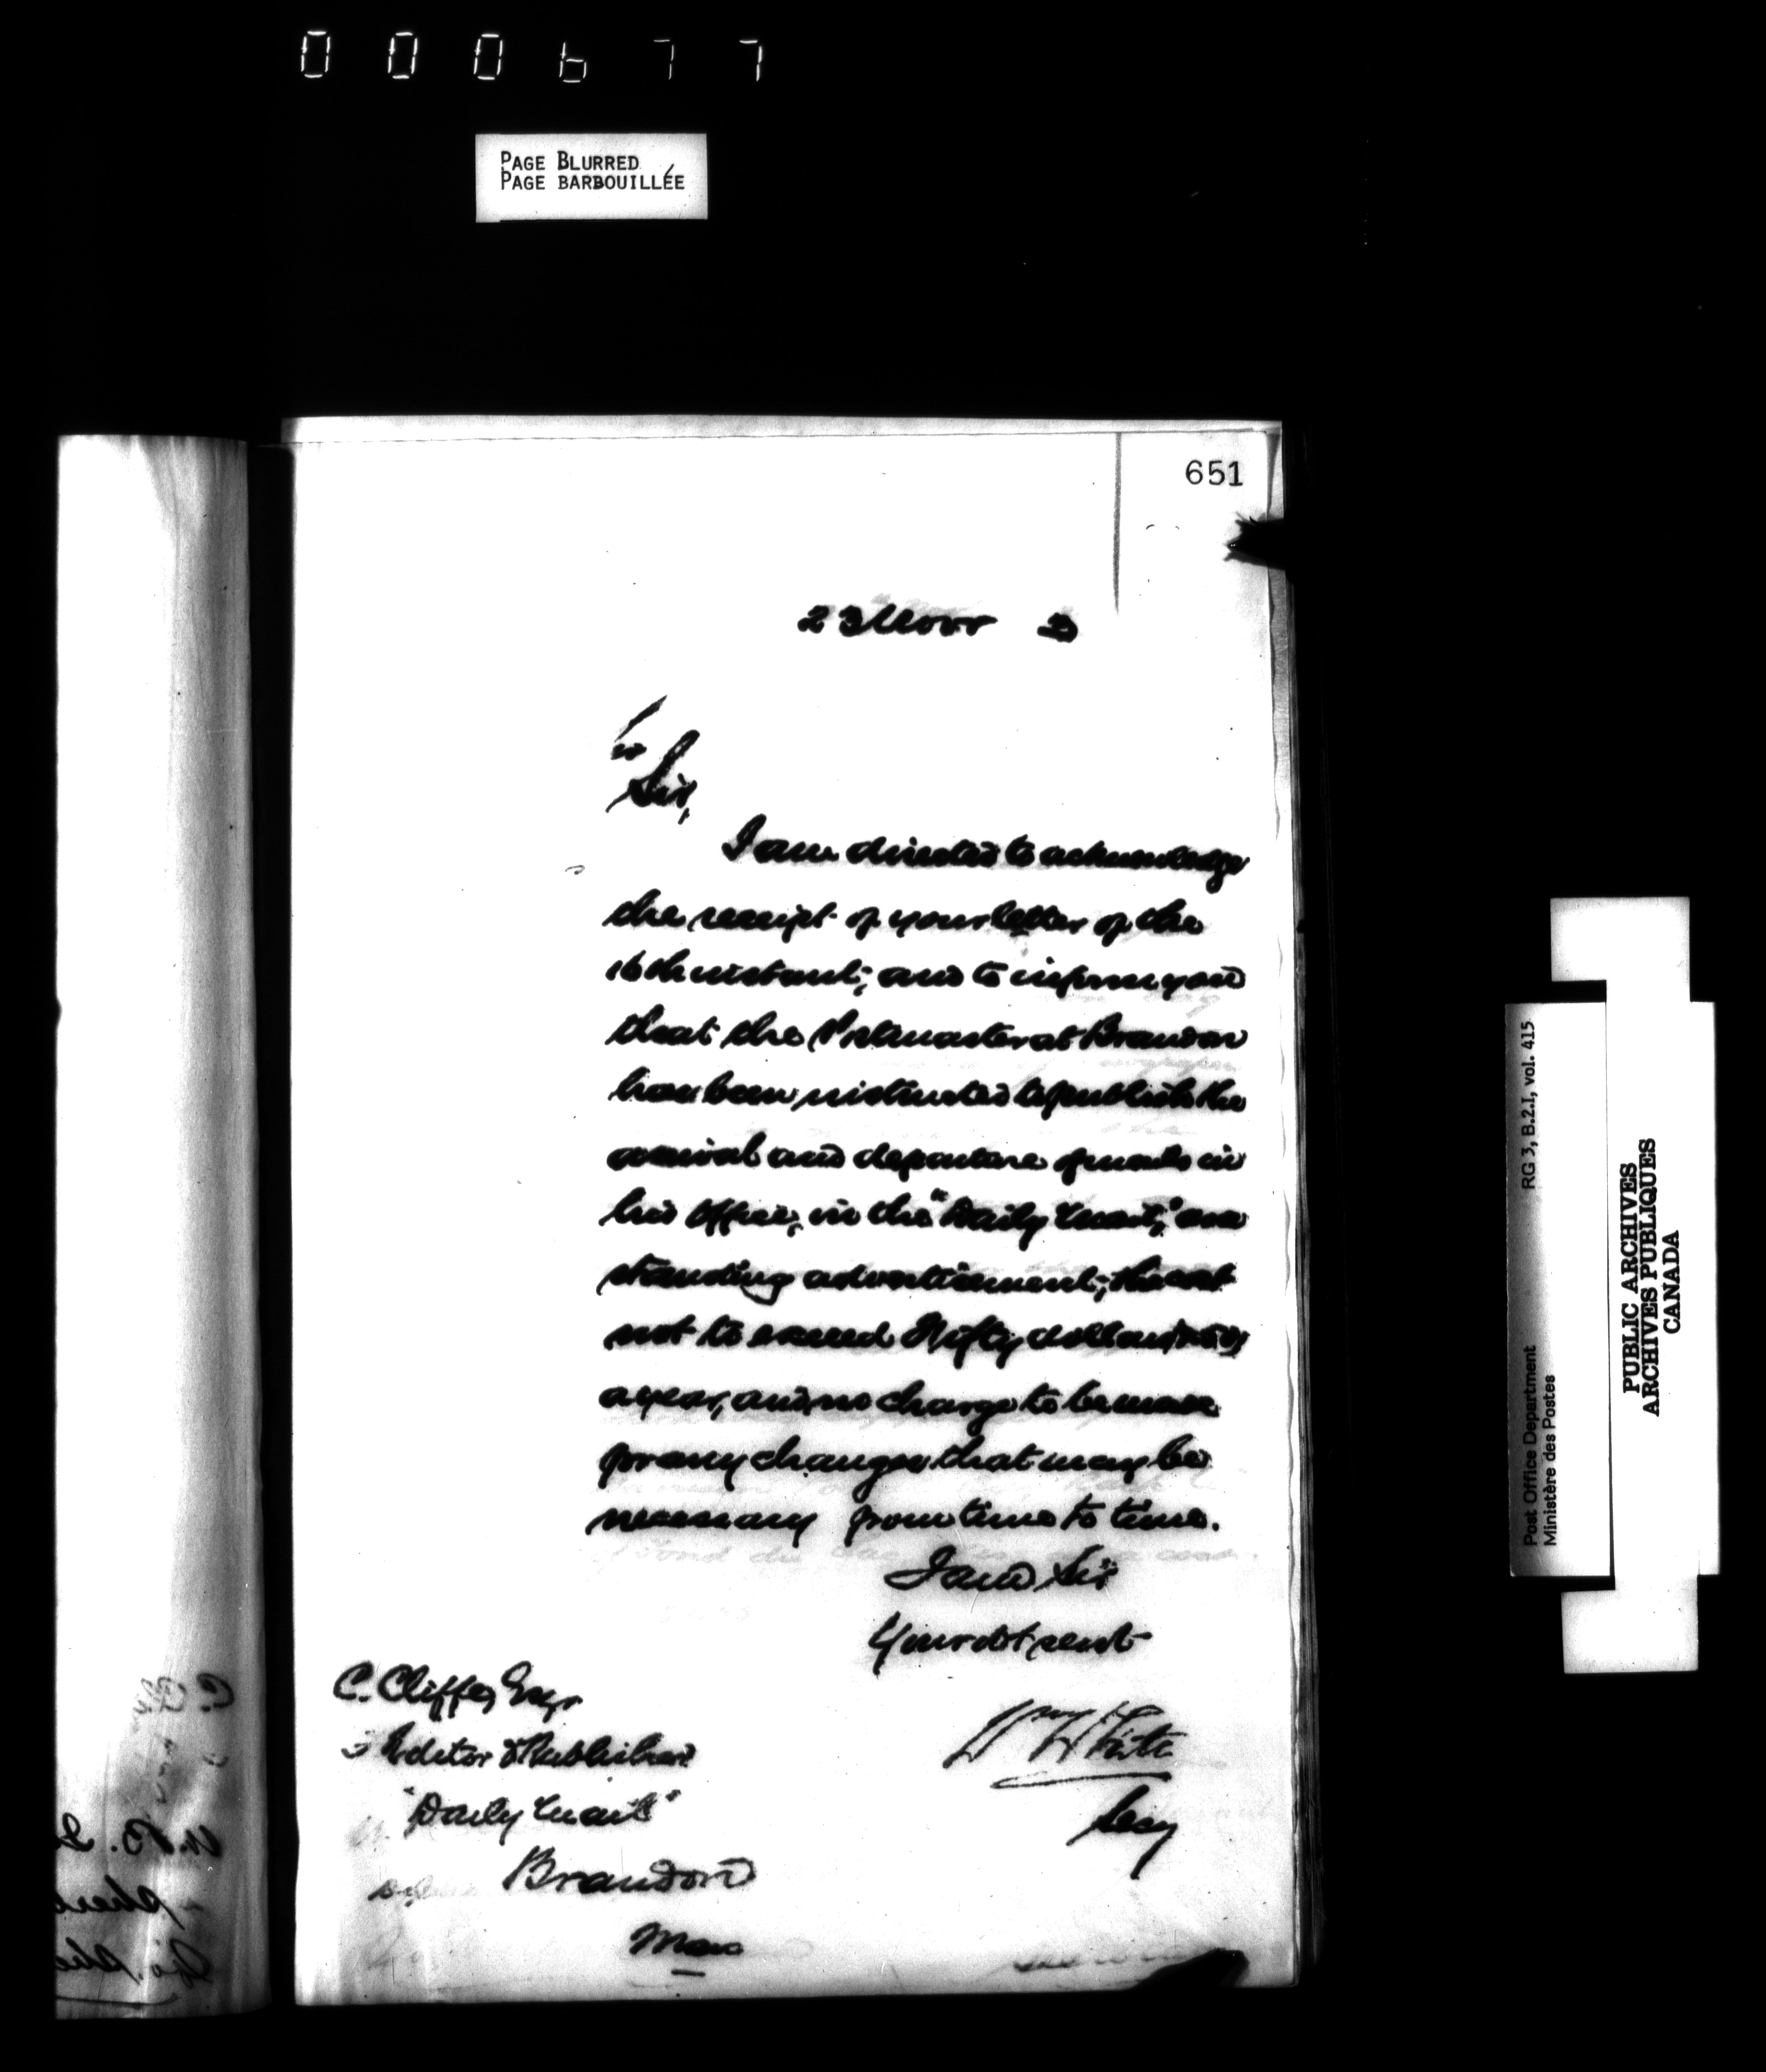 000677
PAGE BLURRED
PAGE BARBOUILLÉE
651
23 Novr 3
Sir,
I am directed to acknowledge
the receipt of your letter of the
16th instant; and to inform you
that the Postmaster at Brandon
has been instructed to publish the
arrival and departure of mails in
his Office, in the "Daily Mail," as a
standing advertisement; the cost
not to exceed Fifty dollars ($50)
a year, and no charge to be made
for any changes that may be
necessary from time to time.
I am Sir
Your obt servt
Wm White
Secy
C. Cliffe, Esqr
Editor & Publisher
"Daily Mail"
Brandon
Man
Post Office Department RG 3, B.2.I, vol. 415
Ministère des Postes
PUBLIC ARCHIVES
ARCHIVES PUBLIQUES
CANADA